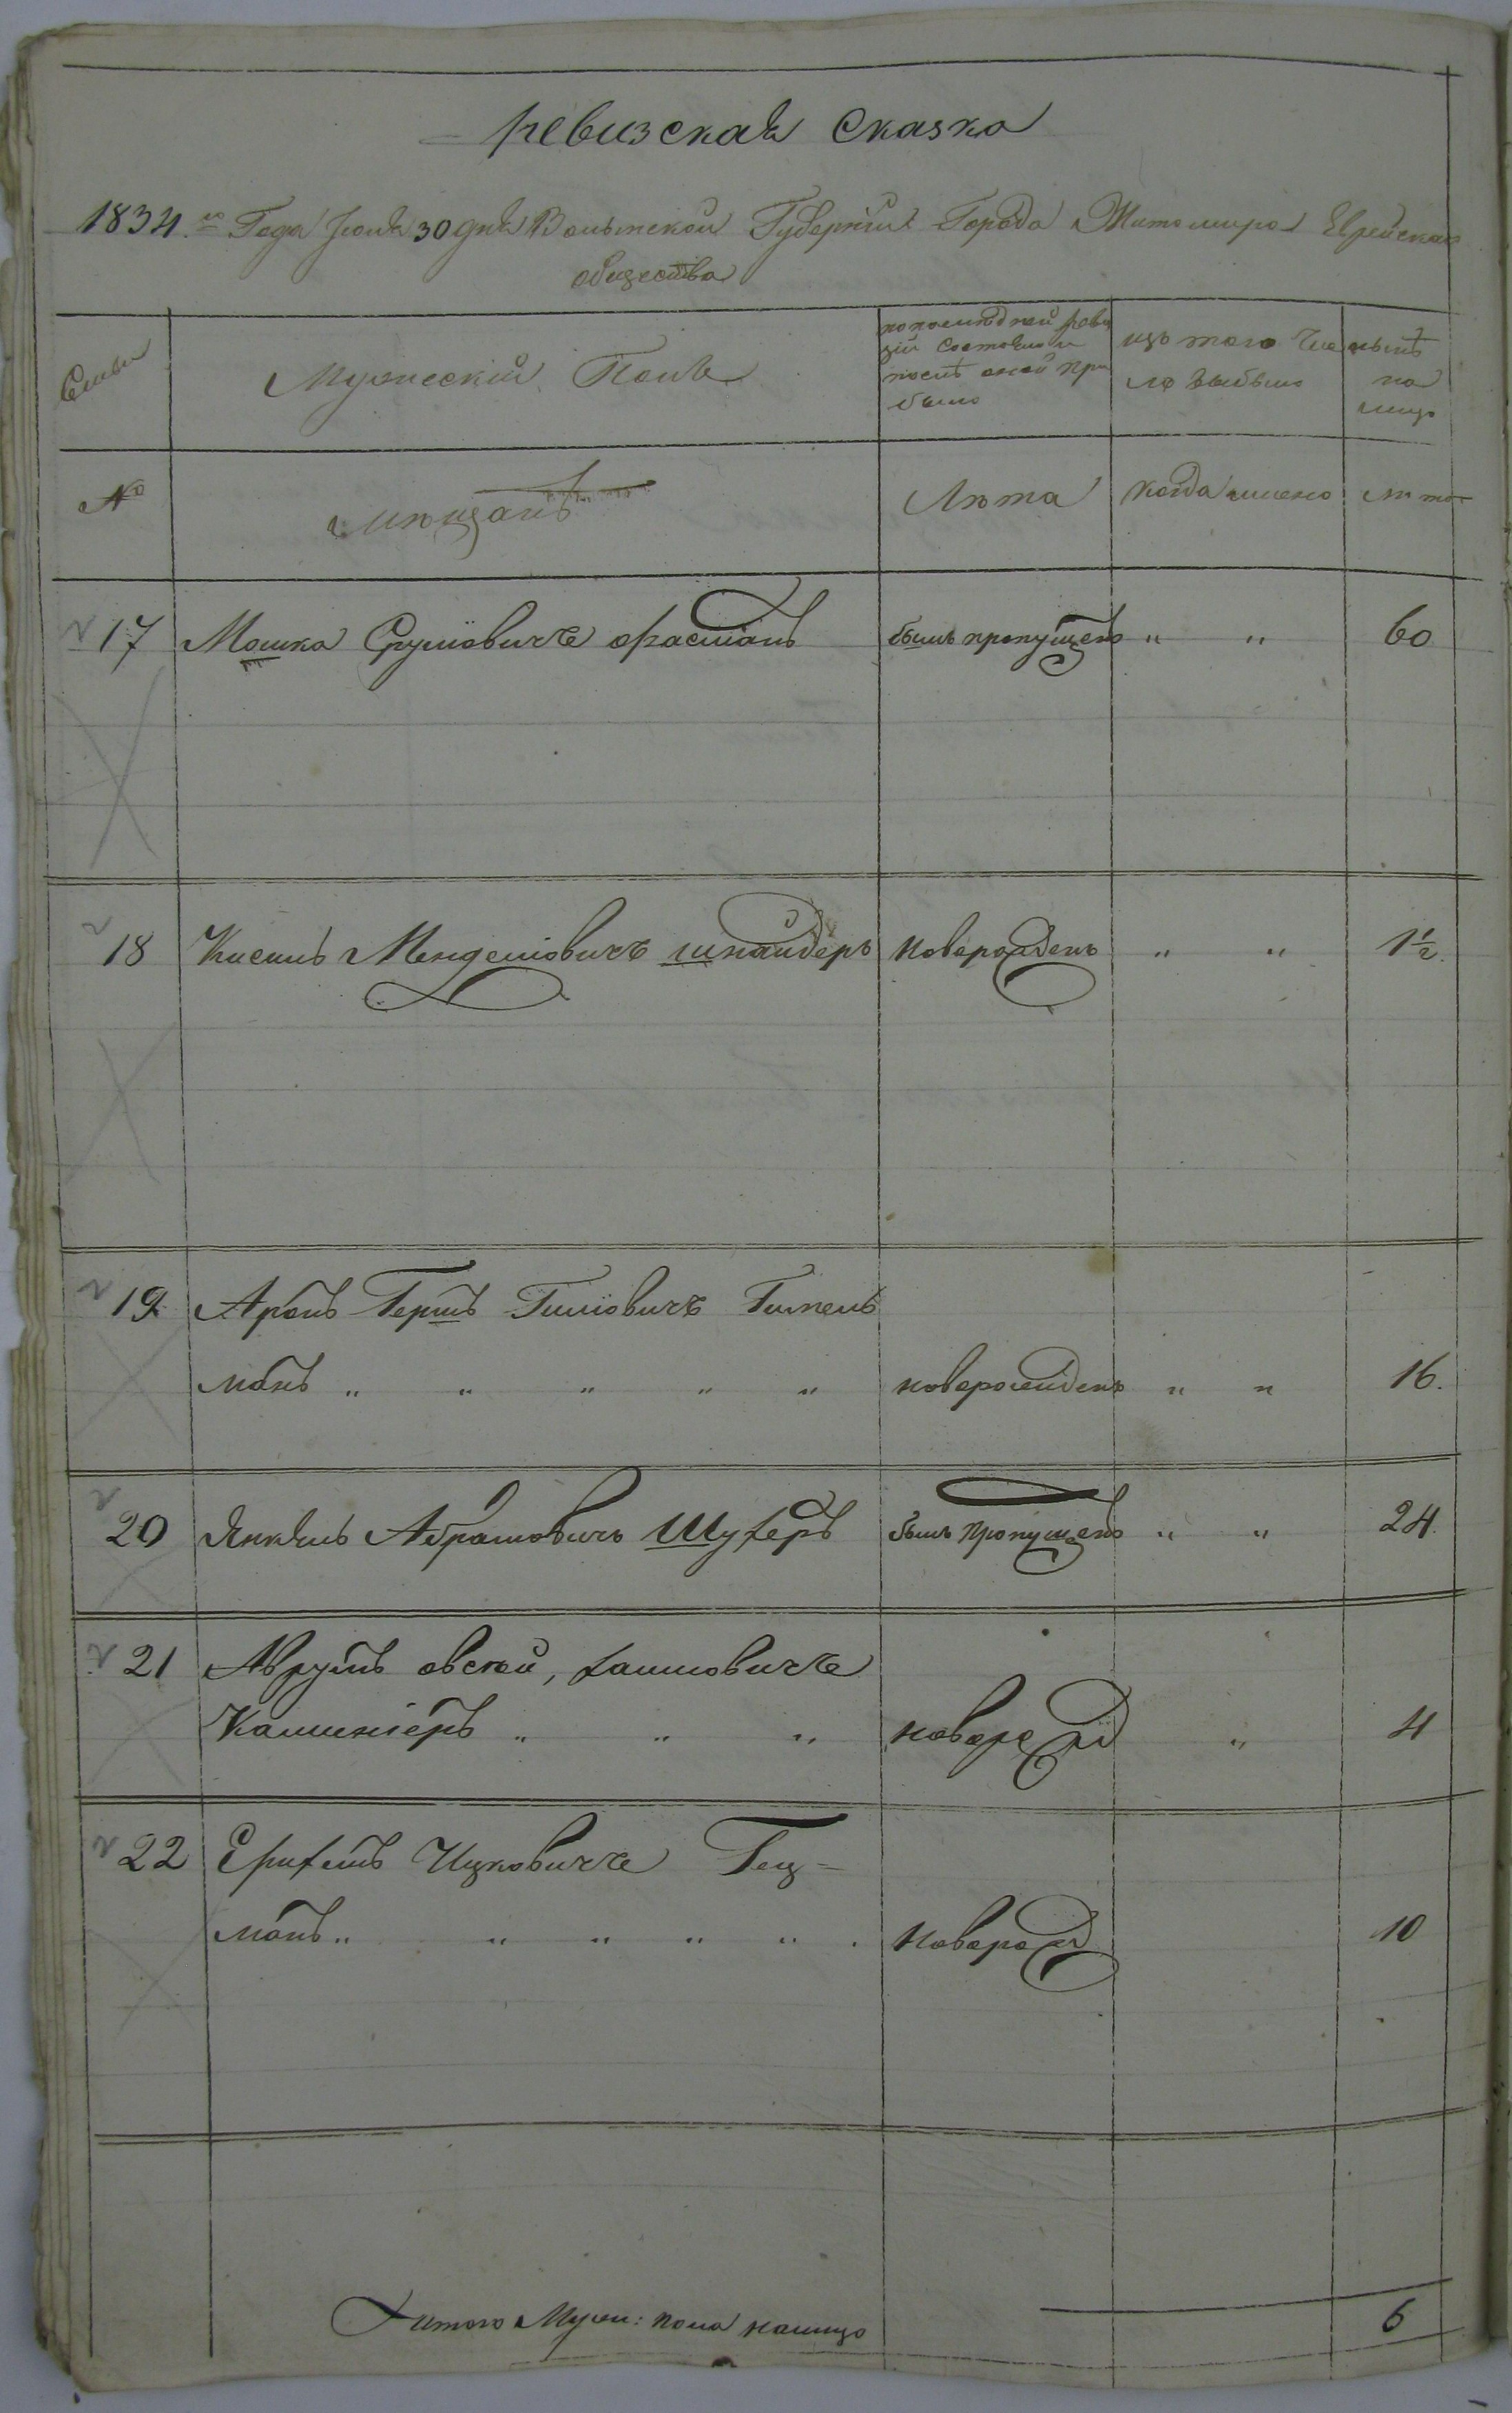 ревизская сказка
1834.го Года Июня 30 дня Волынской Губернии Города Житомира Еврейскаго
общества
Семьи
Мужескій Полъ
по последней реви
зіи состояло и
послѣ оной при
было
изъ того чис
ла выбыло
нынѣ
на
лицо
№
мѣщанъ
Лѣта
когда имено
лѣта
17 Мошко Сруліовичъ фастанъ былъ пропущенъ " " 60
18 Кисиль Менделіовичъ шнайдеръ новорожденъ " " 1½.
19 Аронъ Гершъ Гиліовичъ Гитель
манъ " " " " " новорожденъ " " 16.
20 Янкель Абрамовичъ Шухеръ былъ пропущенъ " " 24.
21 Аврумъ овсѣй, хаимовичъ
" " " новорожд " 4
22 Ерихимъ Ицковичъ Гец=
манъ " " " " " новорожд 10
Итого Муж: пола налицо 6